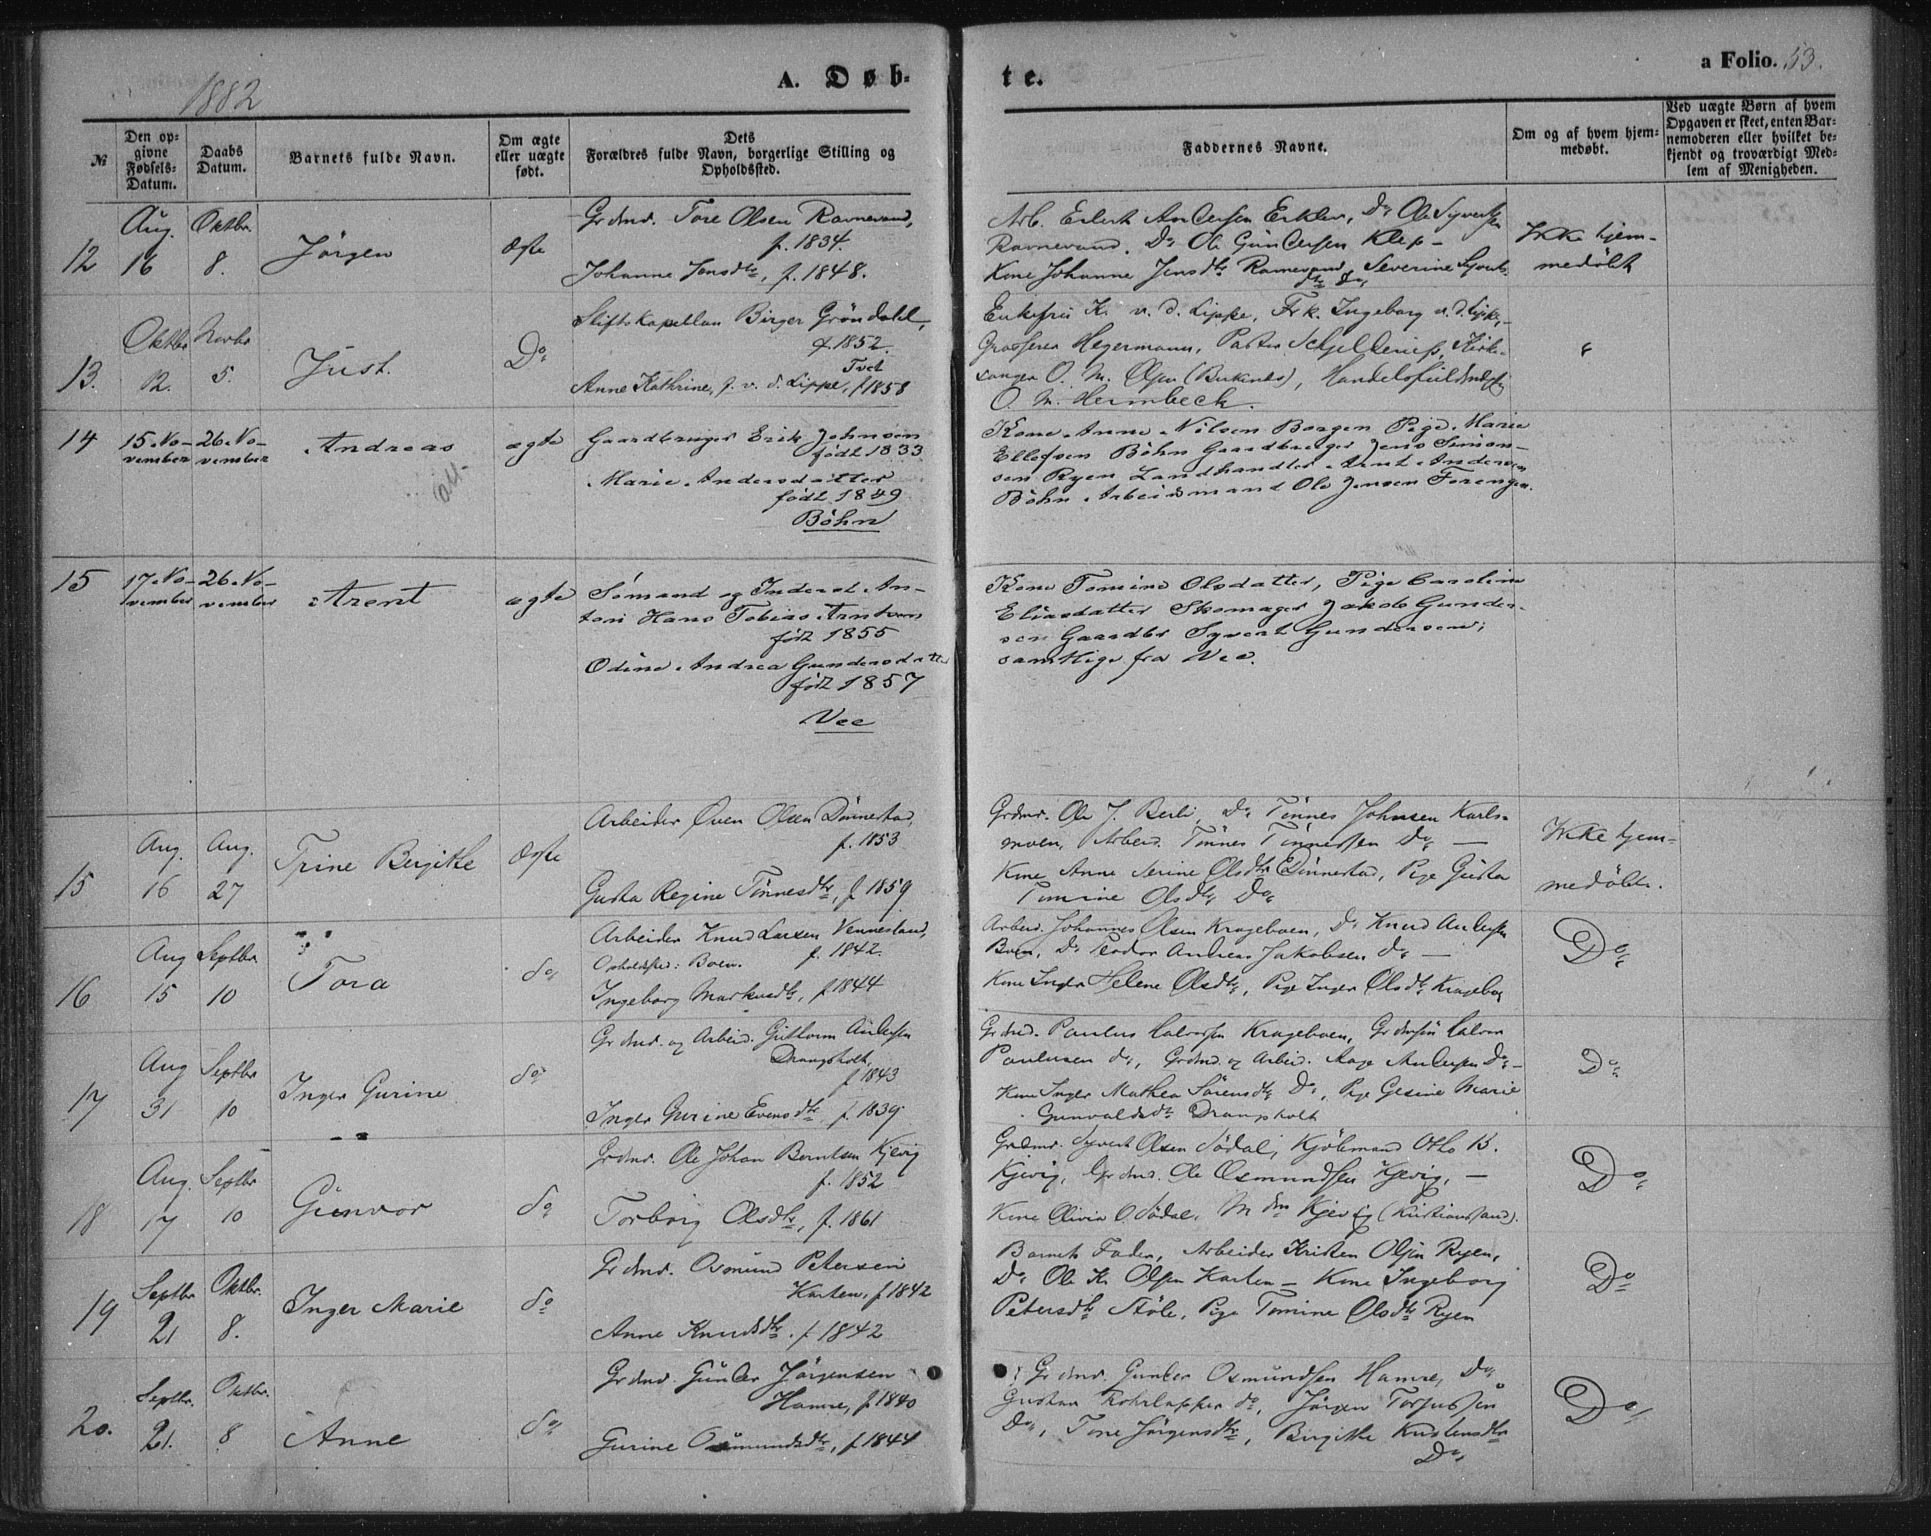 1882
A. Døb-
te.
a Folio. 53.
№
Den op-
givne
Fødsels-
Datum.
Daabs
Datum.
Barnets fulde Navn.
Om ægte
eller uægte
født.
Dets
Forældres fulde Navn, borgerlige Stilling og
Opholdssted.
Faddernes Navne.
Om og af hvem hjem-
medøbt.
Ved uægte Børn af hvem
Opgaven er skeet, enten Bar-
nemoderen eller hvilket be-
kjendt og troværdigt Med-
lem af Menigheden.
12
Aug.
16
Oktbr.
8.
Jörgen
Ægte
Grdmd. Tore Olsen Ravnevand,
f. 1834.
Johanne Jensdtr, f. 1848.
Arb. Andersen Do Ole Syvertsen
Ravnevand. Do Ole Gundersen Klep –
Kone Johanne Jensdtr. Ravnevand, Severine Syverts-
dtr Do
Ikke hjem-
medöbt
13.
Oktbr
12.
Novbr
5.
Just.
Do
Stiftskapellan Birger Gröndahl,
f. 1852.
Tvet
Anne Kathrine, f. v. d. Lippe, f 1858
Enkefru K. v. d. Lippe, Frk. Ingeborg v. d. Lippe,
Grosserer Hegermann, Pastor Schjelderup, Kirke-
sanger O. M. Olsen
O. M. Hermbeck.
14
15 No-
vember
26 No-
vember
Andreas
ægte
Gaardbruger Erik Johnsen
født 1833
Marie Andersdatter
født 1849
Bøhn
Kone Anne Nilsen Borgen Pige Marie
Ellefsen Bøhn Gaardbruger Jens Simon-
sen Ryen Landhandler Arnt Ander-
Bøhn Arbeidsmand Ole Jensen
15
17 No-
vember
26 No-
vember
Arent
ægte
Sømand og Inderst An-
ton Hans Tobias Arntsen
født 1855
Odine Andrea Gundersdatter
født 1857
Vee
Kone Tomine Olsdatter, Pige Caroline
Eliasdatter Skomager Jakob Gunder-
sen Gaardbr Syvert Gundersen,
samtlige fra Vee.
15
Aug.
16
Aug.
27
Trine Birgitte
Ægte
Arbeider Even Olsen Dönnestad,
f. 1853
Gusta Regine Tönnesdtr, f 1859
Grdmd. Ole J. Berli, Do Tönnes Johnsen Karls-
moen, Arbeid. Tönnes Tönnessen Do –
Kone Anne Serine Olsdtr Dönnestad, Pige Gusta
Tomine Olsdtr Do
Ikke hjem-
medöbt.
16
Aug
15
Septbr.
10
Tora
do
Arbeider Knud Larsen Vennesland,
Opholdsted: Boen. f. 1842.
Ingeborg Markusdtr, f 1844
Arbeid. Johannes Olsen Krageboen, Do Knud Andersen
Boen, Do Peder Andreas Jakobsen do –
Kone Inger Helene Olsdtr, Pige Inger Olsdtr Krageboe
Do
17
Aug
31
Septbr
10
Inger Gurine
do
Grdmd. og Arbeid. Guttorm Andersen
Drangsholt,
f 1843
Inger Gurine Evensdtr, f. 1839
Grdmd. Paulus Halvorsen Krageboen, Halvor
Paulusen do, Grdmd. og Arbeid. Aage Andersen Do –
Kone Inger Mathea Sörensdtr Do, Pige Gesine Marie
Gunvaldsdtr Drangsholt
Do
18
Aug.
17
Septbr
10
Gunvor
do
Grdmd. Ole Johan Berntsen Kjevig
f. 1852
Torborg Olsdtr, f. 1861
Grdmd. Syvert Olsen Södal, Kjöbmand Otto B.
Kjevig, Grdmd. Ole Osmundsen Kjevig, –
Kone Olivia O. Södal, Mdm Kjevig (Kristianssand).
Do
19
Septbr
21
Oktbr.
8.
Inger Marie
do
Grdmd. Osmund Petersen
Karten, f 1842
Anne Knudsdtr. f 1842
Barnets Fader, Arbeider Kristen Olsen Ryen,
Do Ole Kr. Olsen Karten – Kone Ingeborg
Petersdtr Stöle, Pige Tomine Olsdtr Ryen
Do
20.
Septbr.
21.
Oktbr.
8
Anne
do
Grdmd. Gunder Jörgensen
Hamre, f 1840
Gurine Osmundsdtr, f 1844
Grdmd. Gunder Osmundsen Hamre, Do
Gustav do, Jörgen Torjussen
Do, Tone Jörgensdtr, Birgitte Kristensdtr
Do
Do